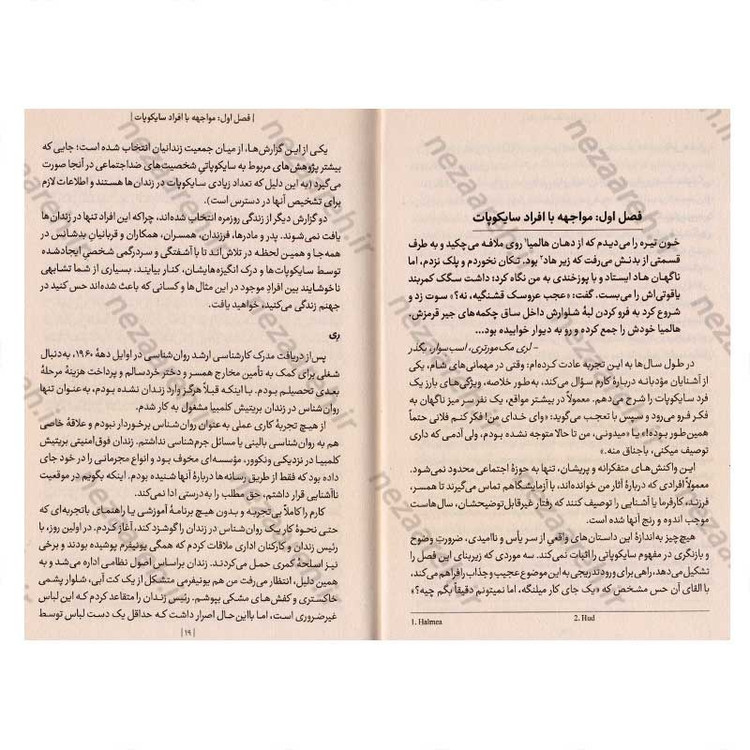 فصل اول: مواجهه با افراد سایکوپات
خون تیره را می‌دیدم که از دهان هالمیا¹ روی ملافه می‌چکید و به طرف
قسمتی از بدنش می‌رفت که زیر هاد² بود. تکان نخوردم و پلک نزدم، اما
ناگهان هاد ایستاد و با پوزخندی به من نگاه کرد؛ داشت سگک کمربند
یاقوتی‌اش را می‌بست. گفت: «عجب عروسک قشنگیه، نه؟» سوت زد و
شروع کرد به فرو کردن لبهٔ شلوارش داخل ساق چکمه‌های جیر قرمزش.
هالمیا خودش را جمع کرده و رو به دیوار خوابیده بود...
- لری مک مورتری، اسب‌سوار، بگذر
در طول سال‌ها به این تجربه عادت کرده‌ام: وقتی در مهمانی‌های شام، یکی
از آشنایان مؤدبانه دربارهٔ کارم سؤال می‌کند، به‌طور خلاصه، ویژگی‌های بارز یک
فرد سایکوپات را شرح می‌دهم. معمولاً در بیشتر مواقع، یک نفر سر میز ناگهان به
فکر فرو می‌رود و سپس با تعجب می‌گوید: «وای خدای من! فکر کنم فلانی حتماً
همین‌طور بوده!» یا «میدونی، من تا حالا متوجه نشده بودم، ولی آدمی که داری
توصیف میکنی، باجناق منه.»
این واکنش‌های متفکرانه و پریشان، تنها به حوزهٔ اجتماعی محدود نمی‌شود.
معمولاً افرادی که دربارهٔ آثار من خوانده‌اند، با آزمایشگاهم تماس می‌گیرند تا همسر،
فرزند، کارفرما یا آشنایی را توصیف کنند که رفتار غیرقابل‌توضیحشان، سال‌هاست
موجب اندوه و رنج آنها شده است.
هیچ چیز به‌اندازهٔ این داستان‌های واقعی از سر یأس و ناامیدی، ضرورتِ وضوح
و بازنگری در مفهوم سایکوپاتی را اثبات نمی‌کند. سه موردی که زیربنای این فصل را
تشکیل می‌دهد، راهی برای ورود تدریجی به این موضوع عجیب و جذاب را فراهم می‌کند،
با القای آن حس مشخص که «یک جای کار میلنگه، اما نمیتونم دقیقاً بگم چیه؟»
1. Halmea
2. Hud
| فصل اول: مواجهه با افراد سایکوپات |
یکی از این گزارش‌ها، از میان جمعیت زندانیان انتخاب شده است؛ جایی که
بیشتر پژوهش‌های مربوط به سایکوپاتیِ شخصیت‌های ضداجتماعی در آنجا صورت
می‌گیرد (به این دلیل که تعداد زیادی سایکوپات در زندان‌ها هستند و اطلاعات لازم
برای تشخیص آنها در دسترس است).
دو گزارش دیگر از زندگی روزمره انتخاب شده‌اند، چراکه این افراد تنها در زندان‌ها
یافت نمی‌شوند. پدر و مادرها، فرزندان، همسران، همکاران و قربانیانِ بدشانس در
همه‌جا و همین لحظه در تلاش‌اند تا با آشفتگی و سردرگمی شخصیِ ایجادشده
توسط سایکوپات‌ها و درک انگیزه‌هایشان، کنار بیایند. بسیاری از شما تشابهی
ناخوشایند بین افرادِ موجود در این مثال‌ها و کسانی که باعث شده‌اند حس کنید در
جهنم زندگی می‌کنید، خواهید یافت.
ری
پس از دریافت مدرک کارشناسی ارشد روان‌شناسی در اوایل دههٔ ۱۹۶۰، به‌دنبال
شغلی برای کمک به تأمین مخارج همسر و دختر خردسالم و پرداخت هزینهٔ مرحلهٔ
بعدی تحصیلم بودم. با اینکه قبلاً هرگز وارد زندان نشده بودم، به‌عنوان تنها
روان‌شناس در زندان بریتیش کلمبیا مشغول به کار شدم.
از هیچ تجربهٔ کاری عملی به‌عنوان روان‌شناس برخوردار نبودم و علاقهٔ خاصی
هم به روان‌شناسی بالینی یا مسائل جرم‌شناسی نداشتم. زندان فوق‌امنیتی بریتیش
کلمبیا در نزدیکی ونکوور، مؤسسه‌ای مخوف بود و انواع مجرمانی را در خود جای
داده بود که فقط از طریق رسانه‌ها دربارهٔ آنها شنیده بودم. اینکه بگویم در موقعیت
ناآشنایی قرار داشتم، حق مطلب را به‌درستی ادا نمی‌کند.
کارم را کاملاً بی‌تجربه و بدون هیچ برنامهٔ آموزشی یا راهنمای باتجربه‌ای که
حتی نحوهٔ کار یک روان‌شناس در زندان را گوشزد کند، آغاز کردم. در اولین روز، با
رئیس زندان و کارکنان اداری ملاقات کردم که همگی یونیفرم پوشیده بودند و برخی
نیز اسلحهٔ کمری حمل می‌کردند. زندان براساس اصول نظامی اداره می‌شد و به
همین دلیل، انتظار می‌رفت من هم یونیفرمی متشکل از یک کت آبی، شلوار پشمی
خاکستری و کفش‌های مشکی بپوشم. رئیس زندان را متقاعد کردم که این لباس
غیرضروری است، اما با این‌حال اصرار داشت که حداقل یک دست لباس توسط
| ۱۹ |
nezaareh.ir